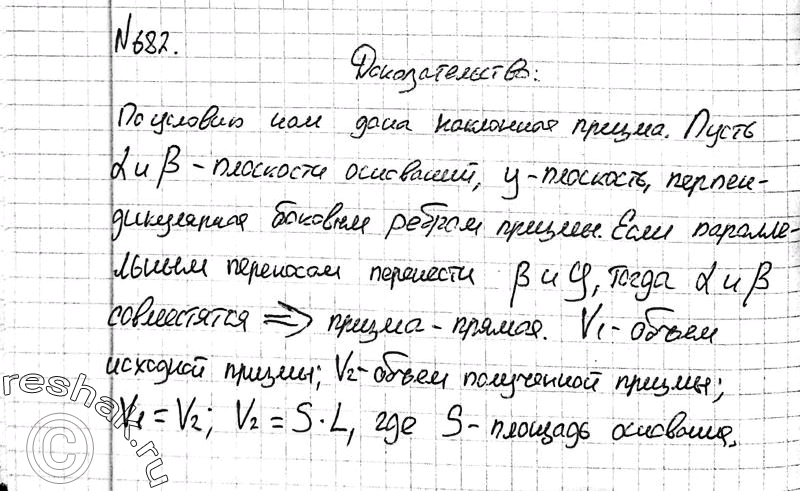 №682.
Доказательство:
По условию нам дана наклонная призма. Пусть
α и β - плоскости оснований, γ - плоскость, перпен-
дикулярная боковым ребрам призмы. Если паралле-
льным переносом перенести β и φ, тогда α и β
совместятся => призма - прямая. V1 - объем
исходной призмы; V2 - объем полученной призмы;
V1 = V2; V2 = S · L, где S - площадь основания,
© reshak.ru